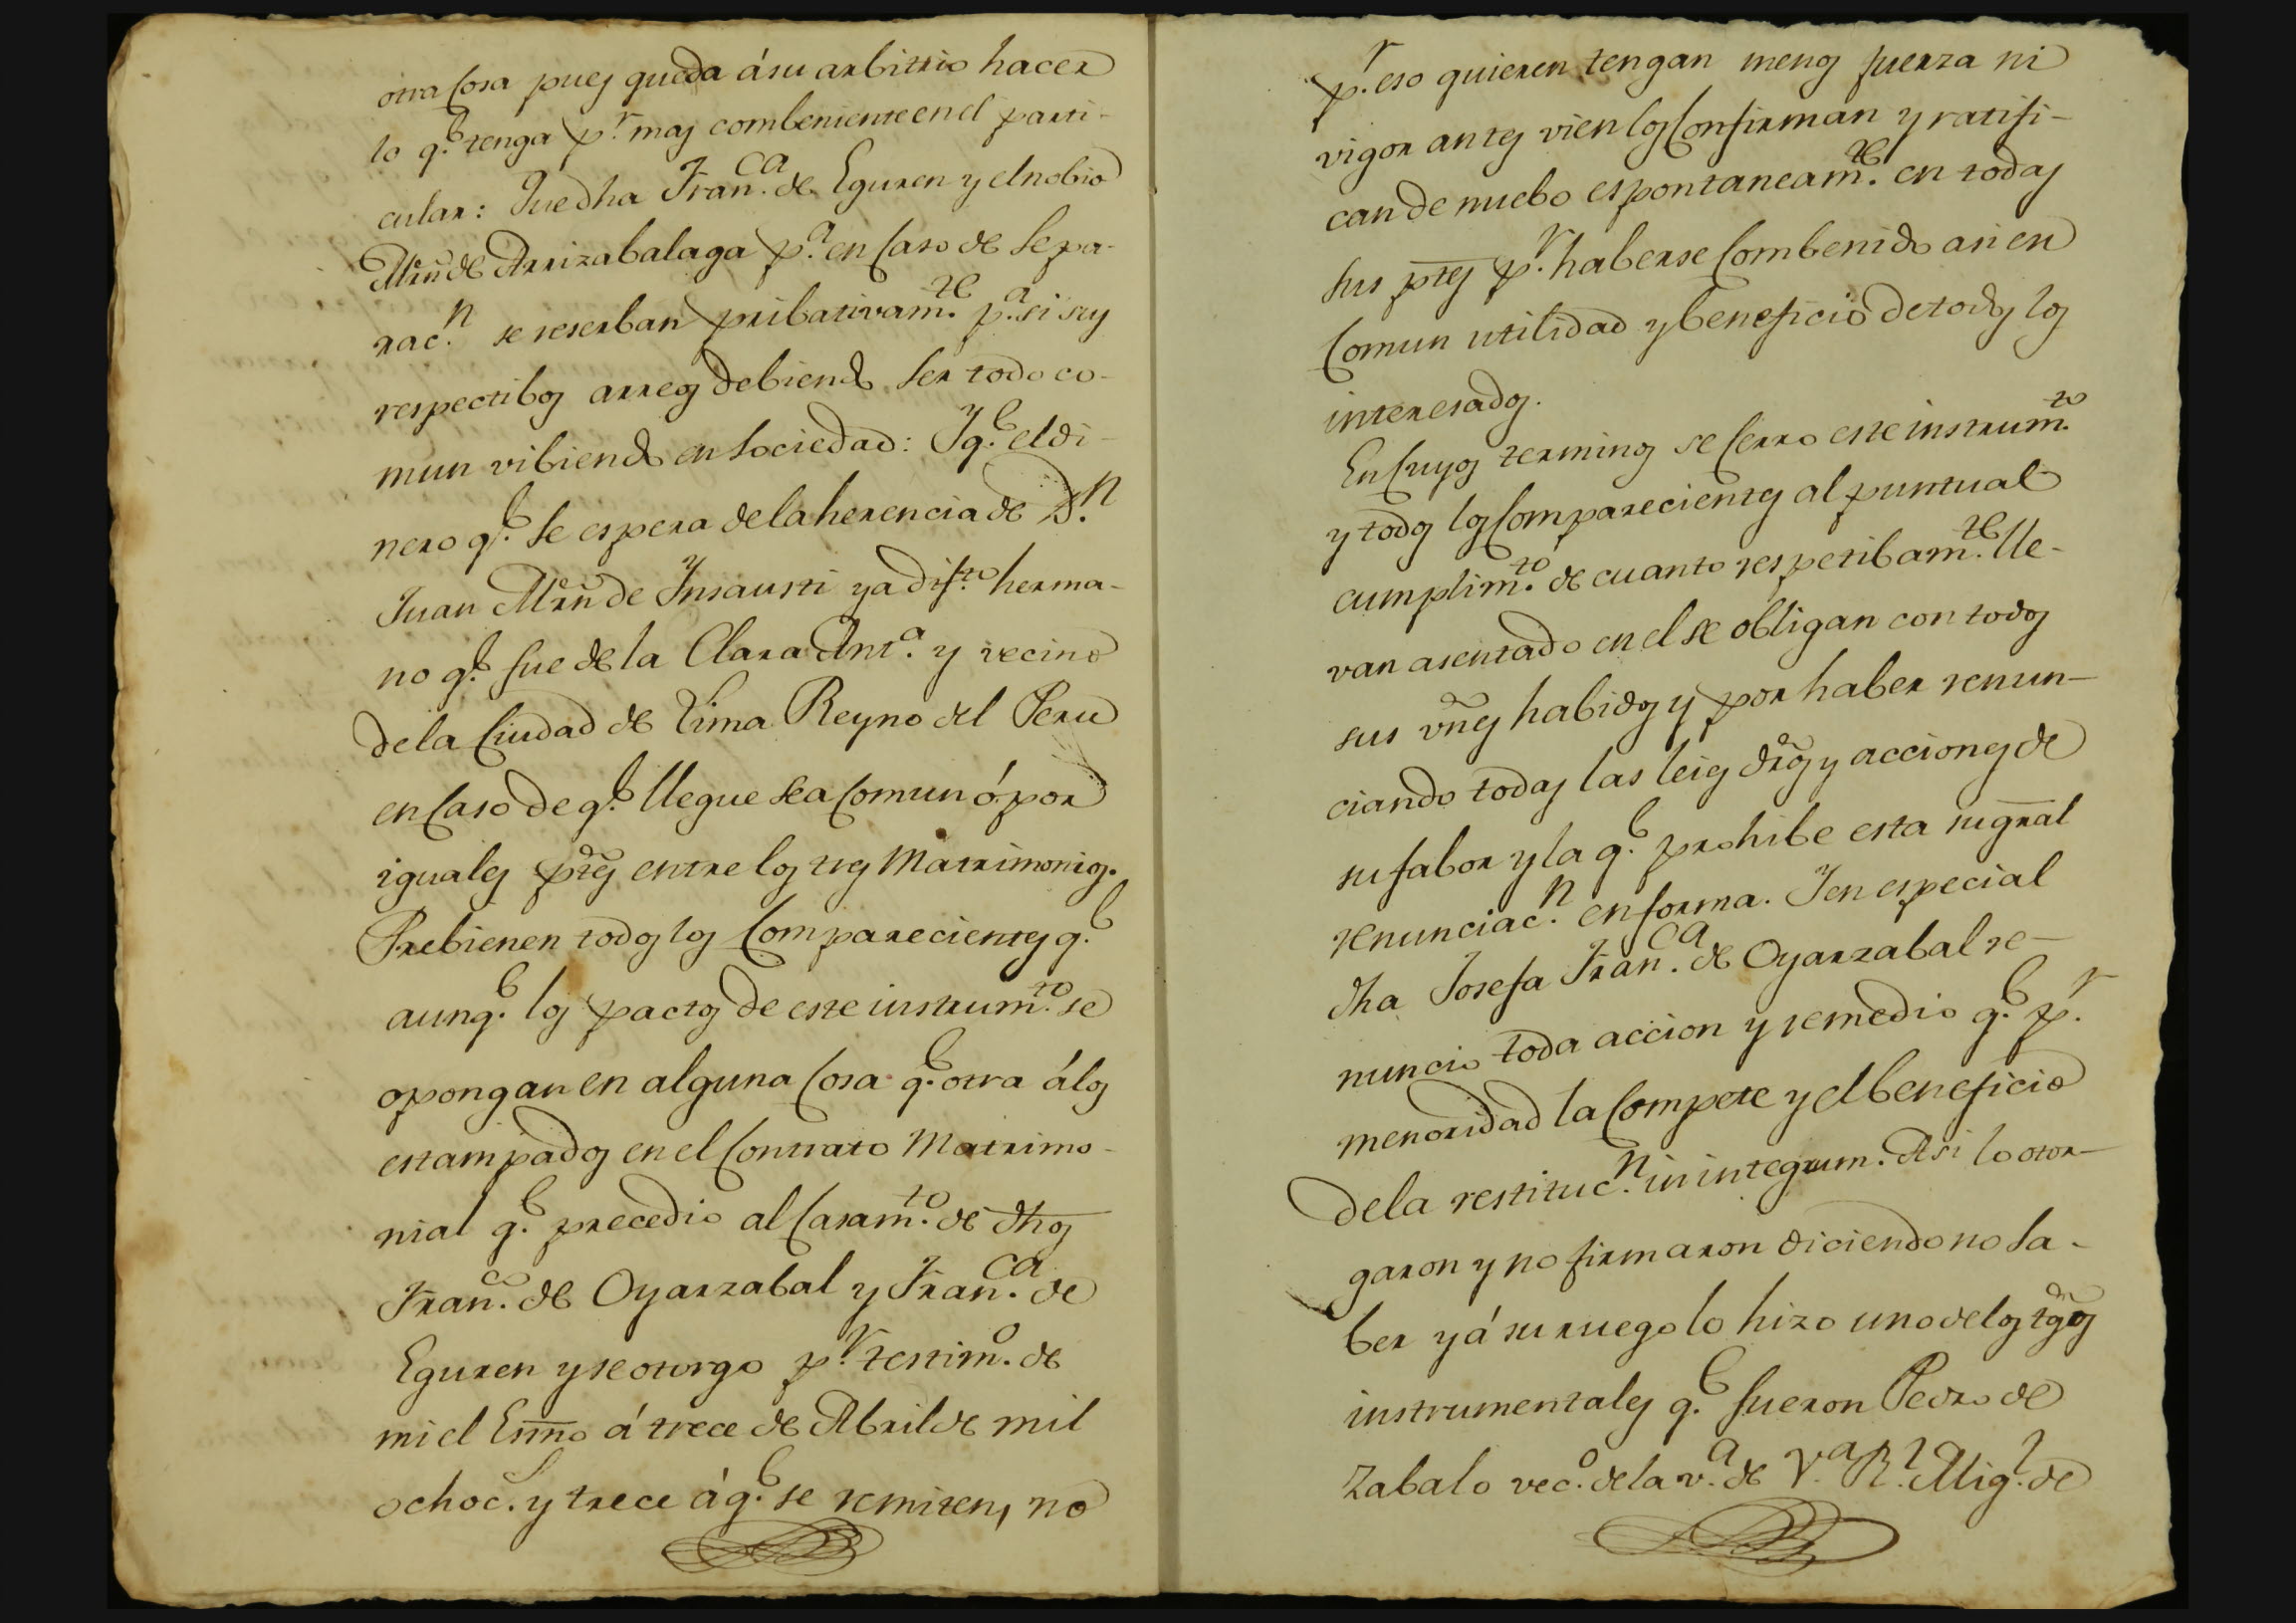 otra Cosa pues queda á su arbitrio hacer
lo q.e tenga p.r mas combeniente en el parti-
cular: Que dha Fran.ca de Eguren y el nobio
Mrñ de Arrizabalaga p.a en Caso de Sepa-
rac.n se reserban pribativam.te p.a si sus
respectibos arreos debiendo ser todo co-
mun vibiendo en Sociedad: Y q.e el di-
nero q.e se espera de la herencia de D.n
Juan Mrñ de Insausti ya dif.to herma-
no q.e fue de la Clara Ant.a y vecino
de la Ciudad de Lima Reyno del Peru
en Caso de q.e llegue sea Comun ó por
iguales ptes entre los tres Matrimonios.
Prebienen todos los Comparecientes q.e
aunq.e los pactos de este instrum.to se
opongan en alguna Cosa q.e otra á los
estampados en el Contrato Matrimo-
nial q.e precedio al Casam.to de dhos
Fran.co de Oyarzabal y Fran.ca de
Eguren y se otorgo p.r testim.o de
mi el Esnno á trece de Abril de mil
ochoc.s y trece á q.e se remiten, no
p.r eso quieren tengan menos fuerza ni
vigor antes vien los Confirman y ratifi-
can de nuebo espontaneam.te en todas
sus ptes p.r haberse Combenido asi en
Comun utilidad y beneficio de todos los
interesados.
En Cuyos terminos se Cerro este instrum.to
y todos los Comparecientes al puntual
cumplim.to de cuanto respetibam.te lle-
van asentado en el se obligan con todos
sus vñes habidos y por haber renun-
ciando todas las leies dros y acciones de
su fabor y la q.e prohibe esta su gral
renunciac.n en forma. Y en especial
dha Josefa Fran.ca de Oyarzabal re-
nuncio toda accion y remedio q.e p.r
menoridad la Compete y el beneficio
de la restituc.n in integrum. Asi lo otor-
garon y no firmaron diciendo no sa-
ber y á su ruego lo hizo uno de los tgos
instrumentales q.e fueron Pedro de
Zabalo vec.o de la v.a de V.a R.l Mig.l de